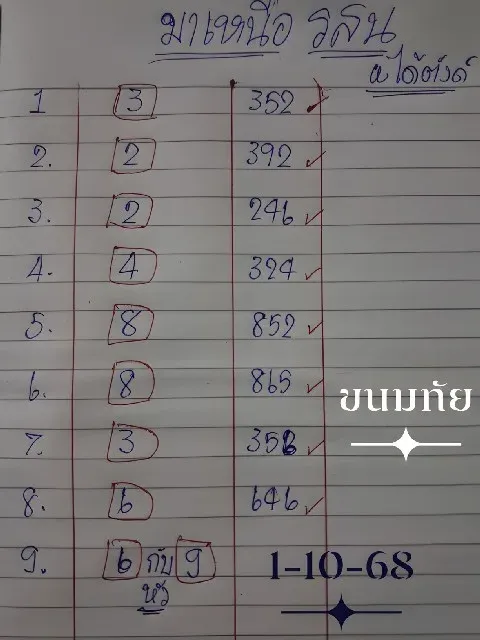 มาเหนือ รสน
ได้ตังค์
1 3 352
2. 2 392
3. 2 246
4. 4 324
5. 8 852
6. 8 865
7. 3 356
8. 6 646
9. 6 กับ 9
หัว
ขนมทัย
1-10-68